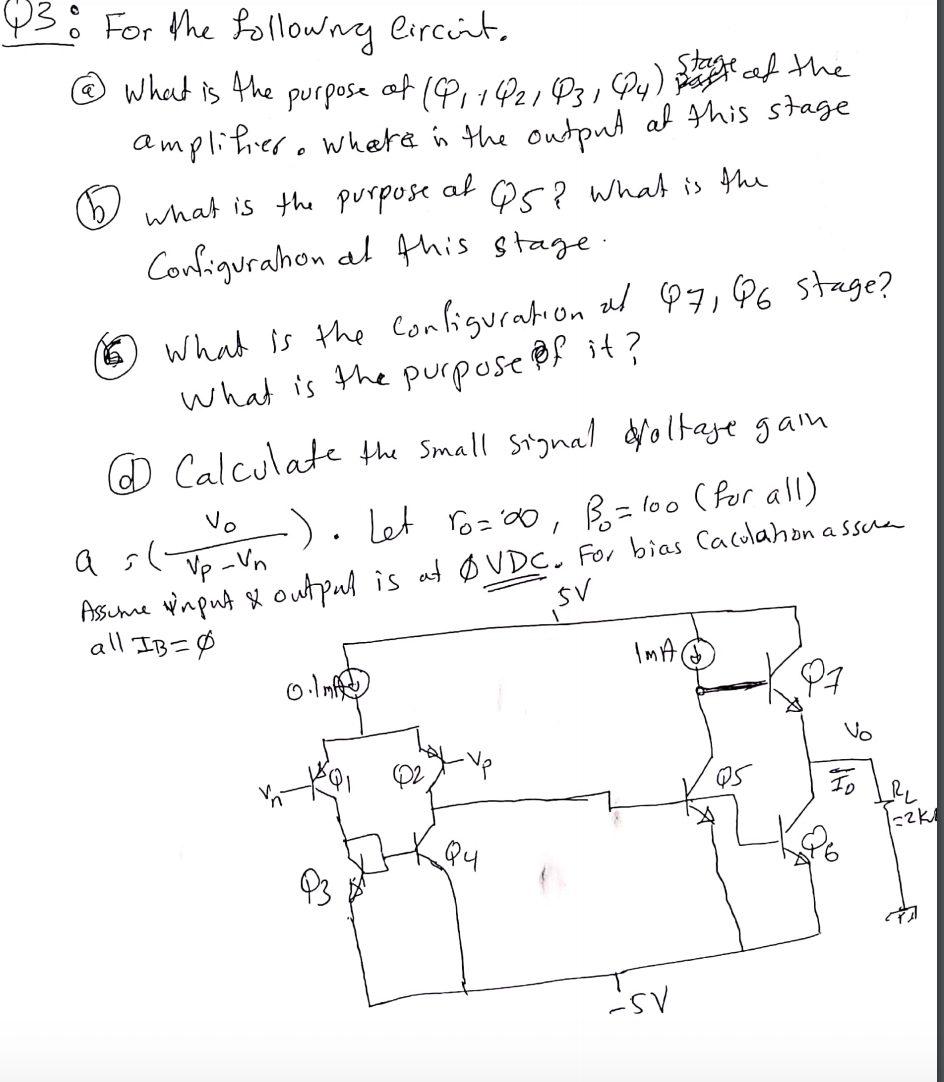 Q3: For the following Circuit.
(a) What is the purpose of (Q1, Q2, Q3, Q4) stage of the
amplifier. what is the output of this stage
(b) what is the purpose of Q5? What is the
Configuration of this stage.
What is the Configuration of Q7, Q6 stage?
What is the purpose of it?
(d) Calculate the small signal voltage gain
a = (Vo / Vp - Vn). Let ro = ∞, βo = 100 (for all)
Assume input & output is at ØVDC. For bias Caculation assume
all IB = Ø
5V
0.1mA
1mA
Q7
Vo
Vn
Q1
Q2
Vp
Q5
Io
RL
=2k
Q4
Q6
Q3
-5V